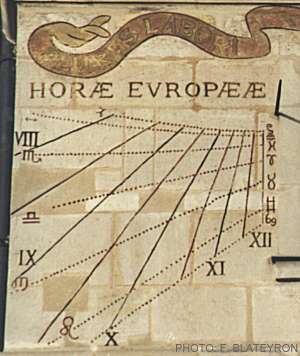 LABORI
HORÆ EVROPÆÆ
VIII
♏
♓
♈
♎
♉
IX
♊
♍
XII
XI
♌
X
PHOTO: F. BLATEYRON